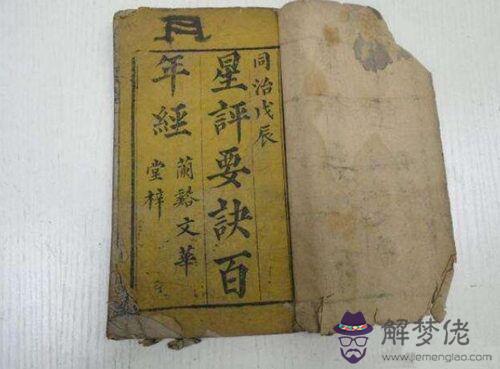 同治戊辰
星評要訣百
年經
蘭谿文華
堂梓
解梦佬
www.jiemenglao.com